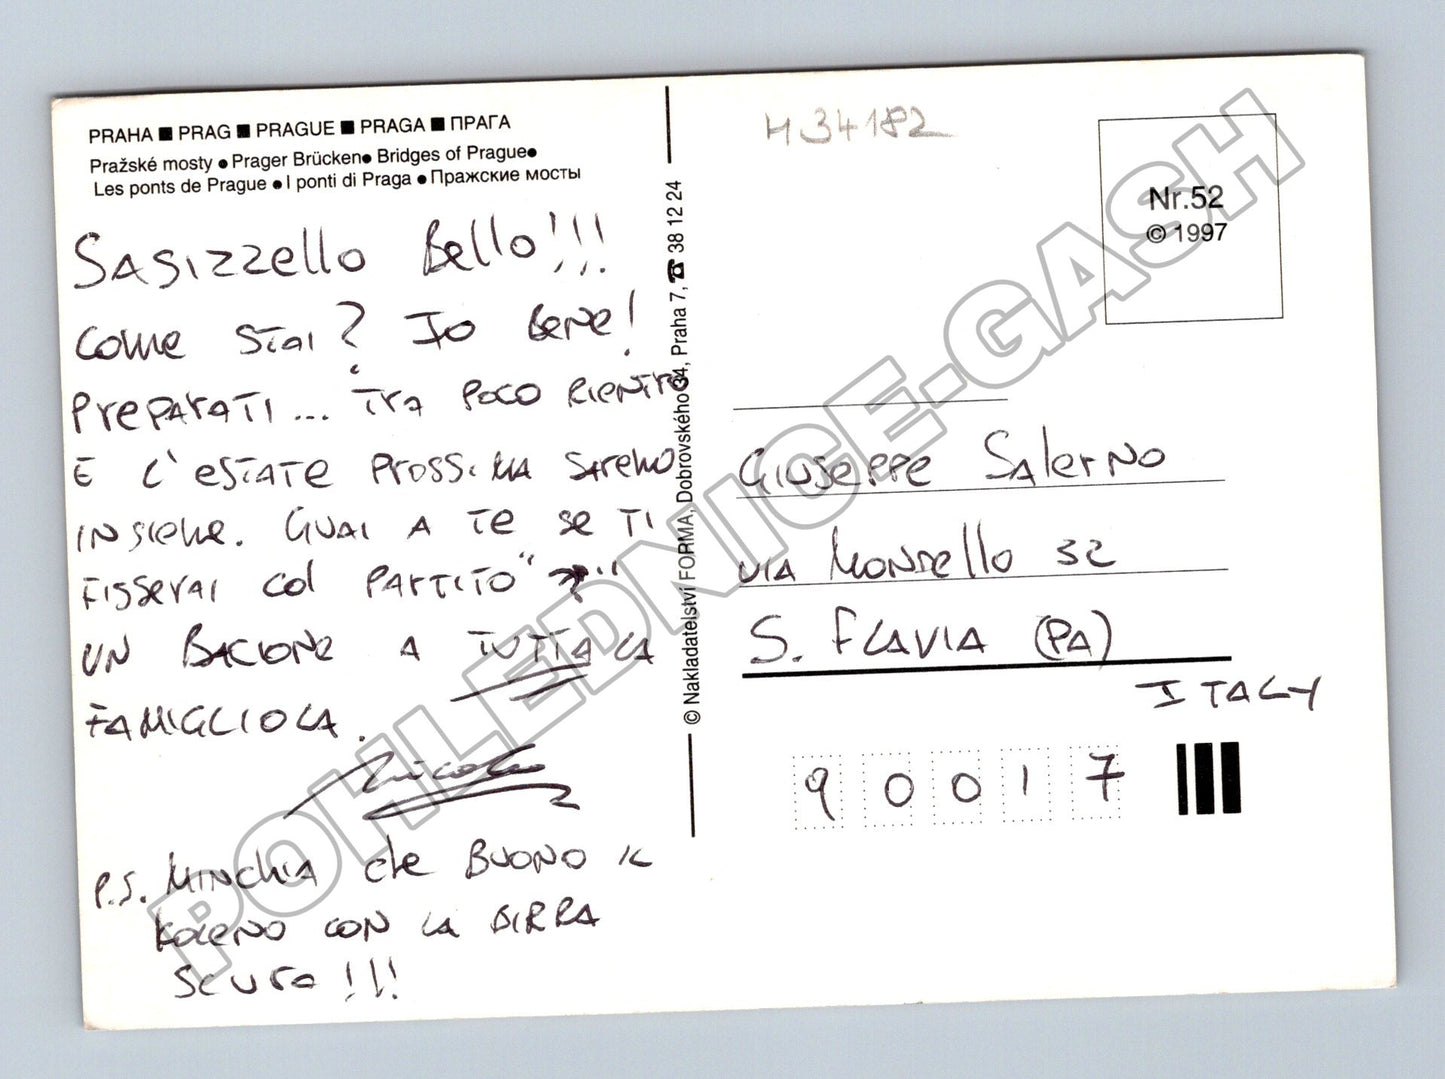 PRAHA ■ PRAG ■ PRAGUE ■ PRAGA ■ ПРАГА
Pražské mosty ● Prager Brücken● Bridges of Prague●
Les ponts de Prague ● I ponti di Praga ● Пражские мосты
SASIZZello Bello!!!
come stai? Io bene!
PrePARATI... TrA POCO RIENTRO
E L'ESTATE PROSSIMA SAREMO
INSIEME. GUAI A TE SE TI
FISSERAI COL PARTITO
UN BACIONE A TUTTA LA
FAMIGLIOLA.
Nicola
P.S. MINCHIA che BUONO IL
KOLENO CON LA BIRRA
SCURA!!!
© Nakladatelství FORMA, Dobrovského 34, Praha 7, ☎ 38 12 24
H34182
Nr.52
© 1997
GIUSEPPE SALERNO
VIA MONDELLO 32
S. FLAVIA (PA)
ITALY
90017
POHLEDNICE-GASH